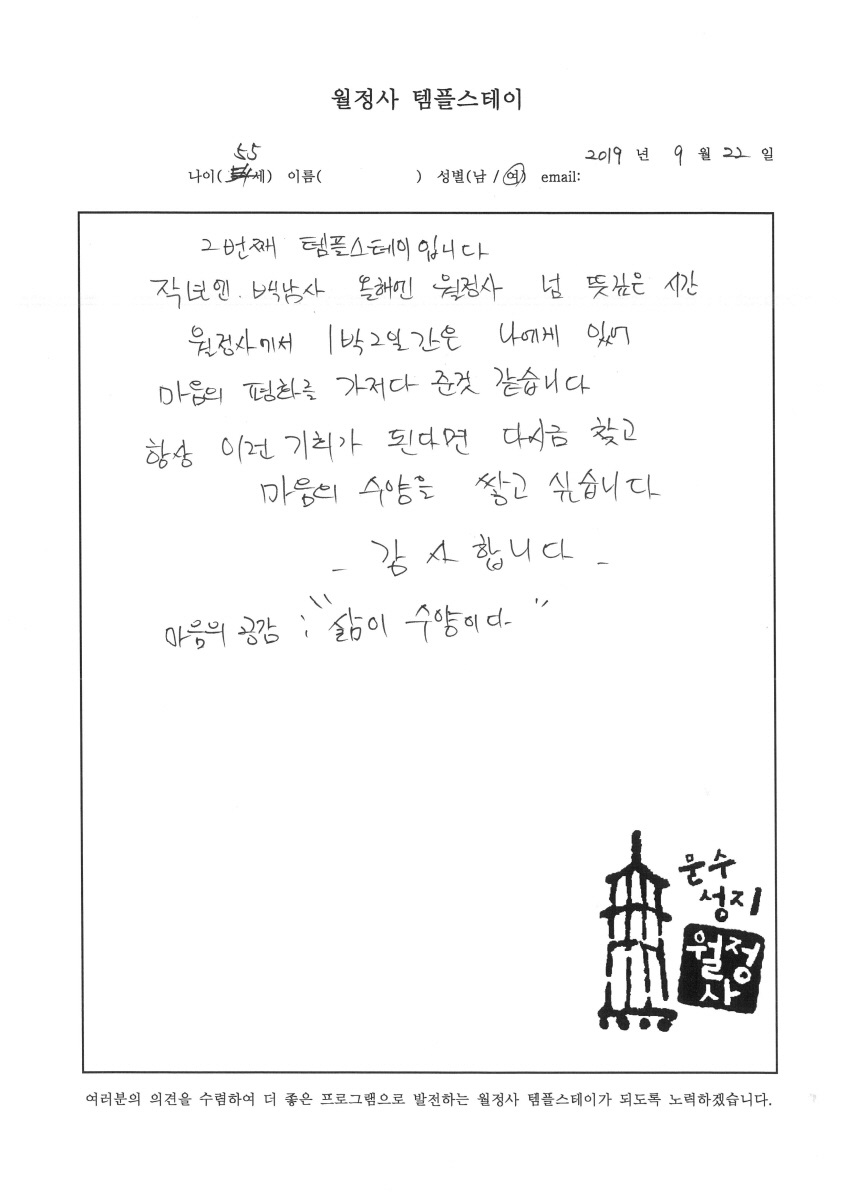 월정사 템플스테이
2019 년 9 월 22 일
55
나이( 세) 이름( ) 성별(남 / 여) email:
2번째 템플스테이입니다
작년엔. 백담사 올해엔 월정사 넘 뜻깊은 시간
월정사에서 1박2일간은 나에게 있어
마음의 평화를 가져다 준것 같습니다
항상 이런 기회가 된다면 다시금 찾고
마음의 수양을 쌓고 싶습니다
- 감사합니다 -
마음의 공감 : "삶이 수양이다."
문수
성지
월정
사
여러분의 의견을 수렴하여 더 좋은 프로그램으로 발전하는 월정사 템플스테이가 되도록 노력하겠습니다.